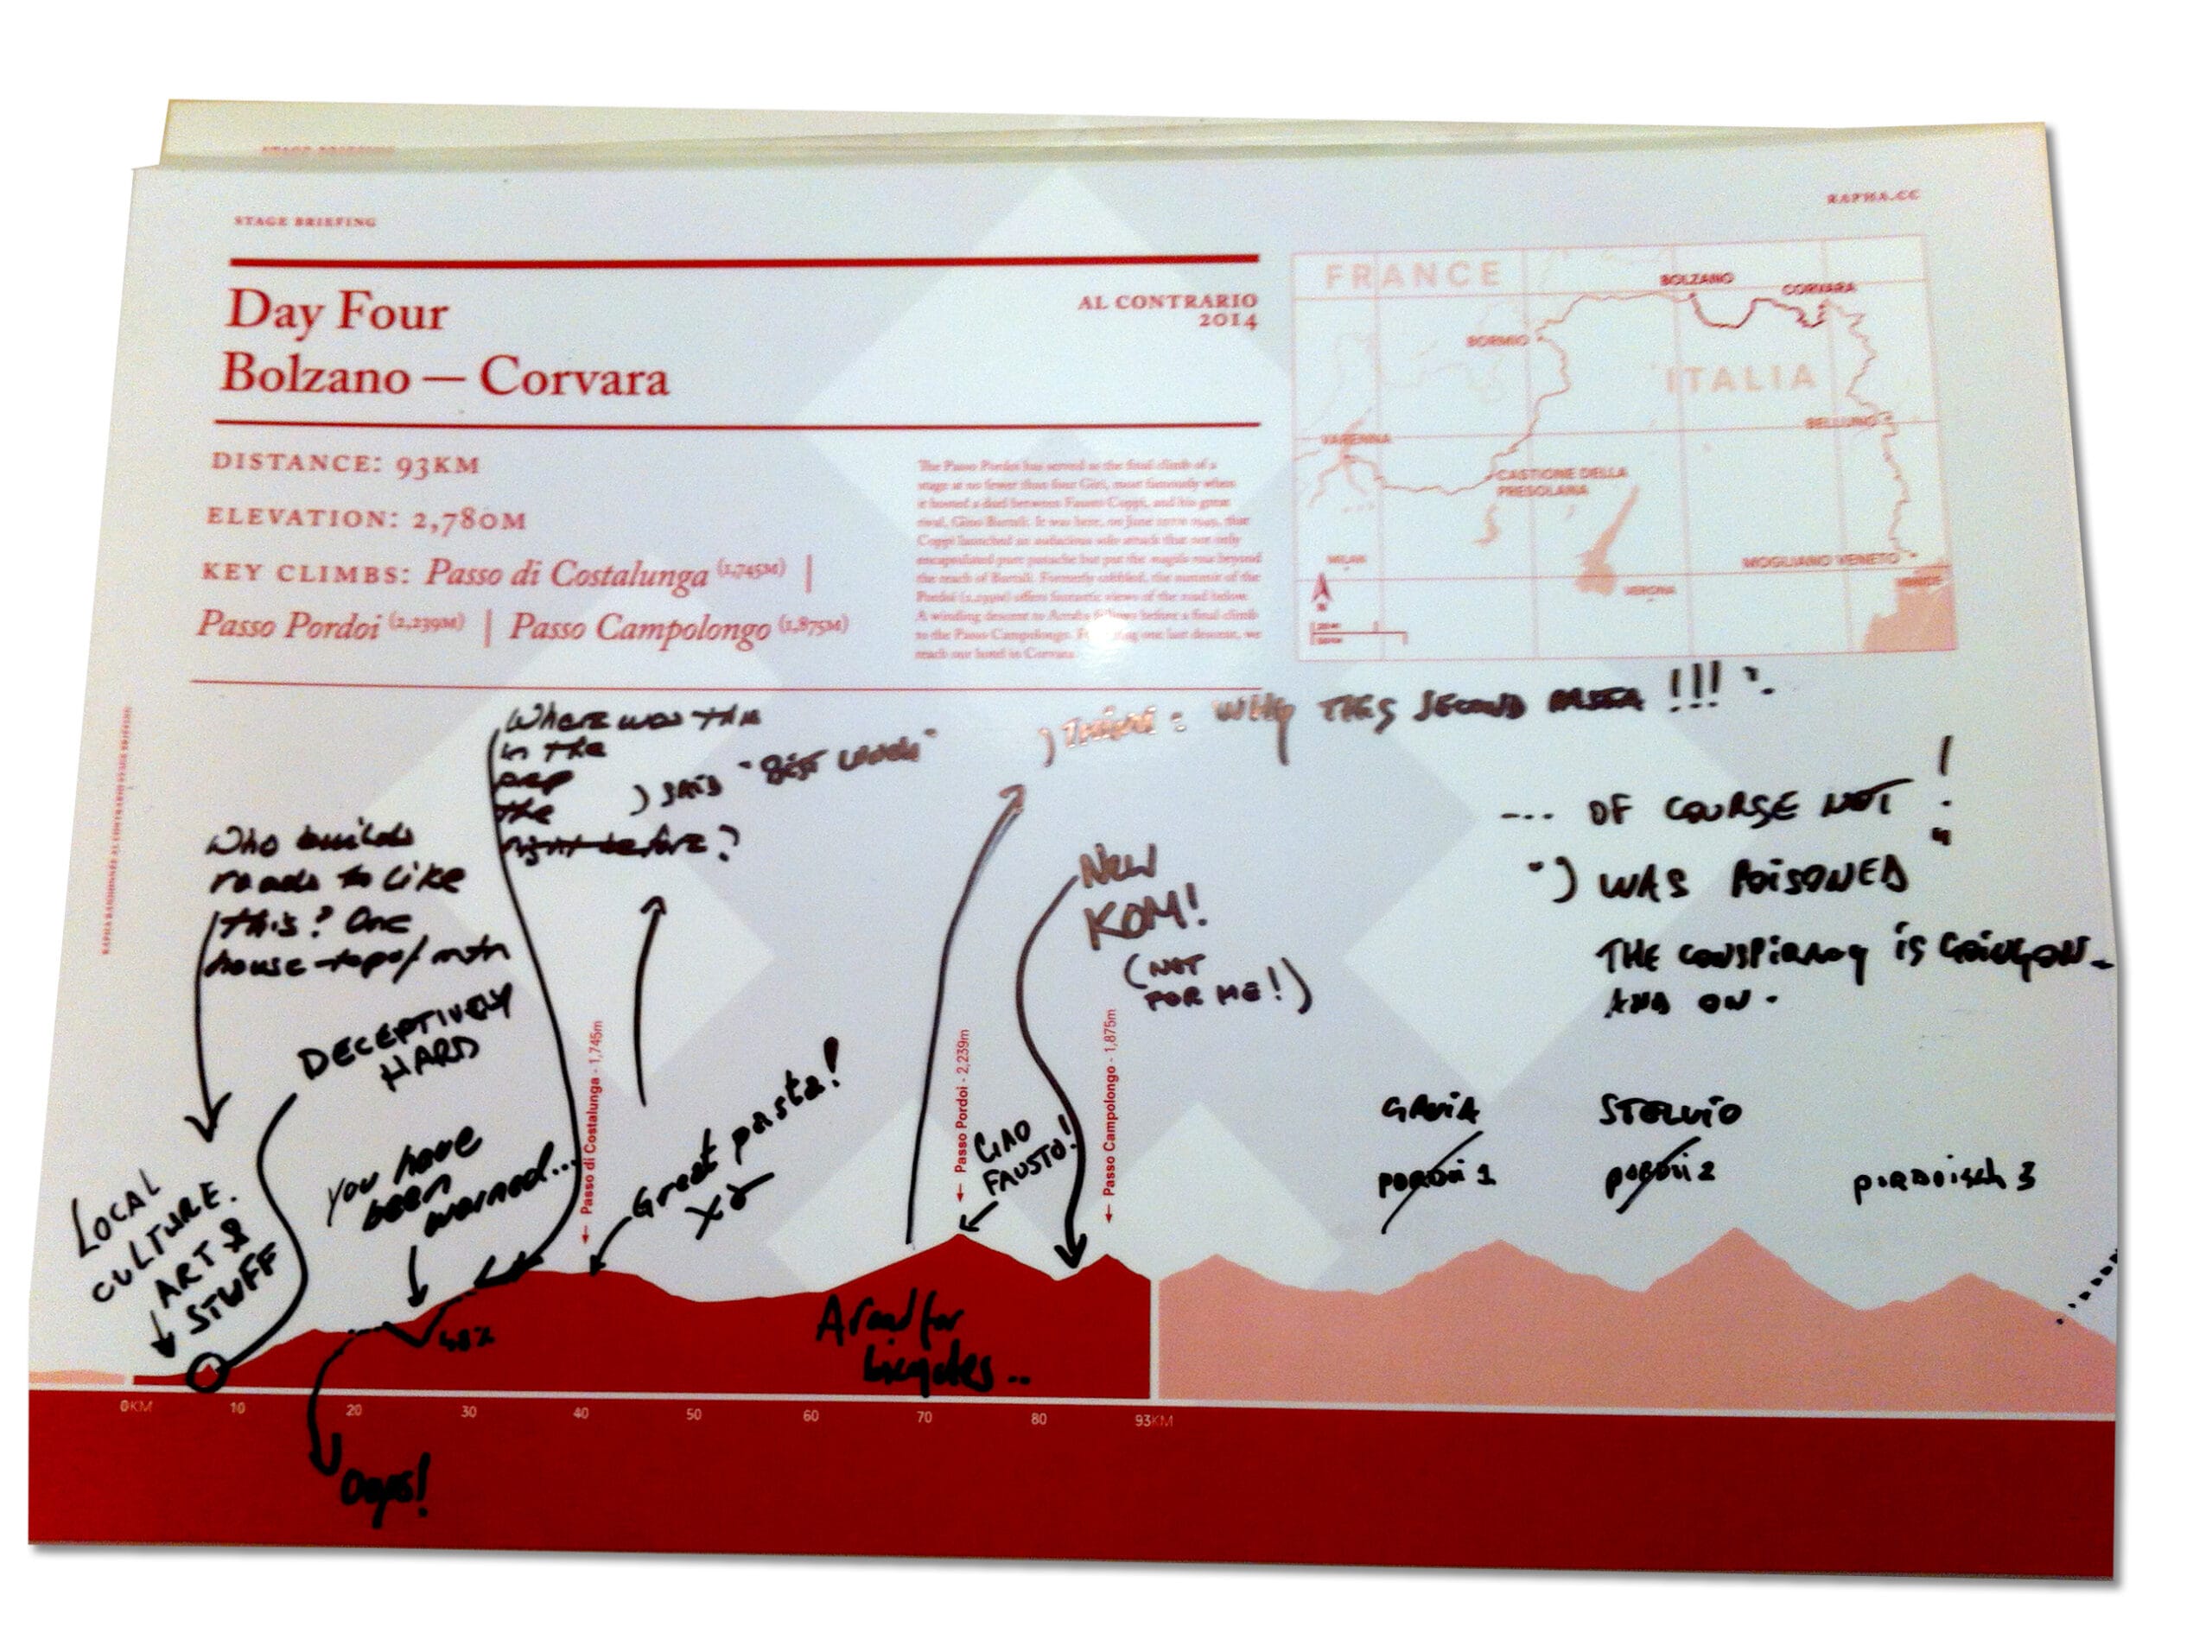 STAGE BRIEFING
STAGE BRIEFING
RAPHA.CC
Day Four
Bolzano — Corvara
AL CONTRARIO
2014
DISTANCE: 93KM
ELEVATION: 2,780M
KEY CLIMBS: Passo di Costalunga (1,745M) |
Passo Pordoi (2,239M) | Passo Campolongo (1,875M)
The Passo Pordoi has served as the final climb of a
stage at no fewer than four Giri, most famously when
it hosted a duel between Fausto Coppi, and his great
rival, Gino Bartali. It was here, on June that
Coppi launched an audacious solo attack that not only
encapsulated pure panache but put the maglia rosa beyond
the reach of Bartali. Formerly cobbled, the summit of the
Pordoi (2,239M) offers fantastic views of the road below.
A winding descent to Arabba follows before a final climb
to the Passo Campolongo. one last descent, we
reach our hotel in Corvara.
FRANCE
BOLZANO
CORVARA
BORMIO
ITALIA
BELLUNO
VARENNA
CASTIONE DELLA
PRESOLANA
MILAN
MOGLIANO VENETO
VENICE
VERONA
N
Where was this
in the
the
right before?
) SAID "BEST LUNCH"
) THINK: WHY THIS SECOND PASTA !!!".
... OF COURSE NOT!
") WAS POISONED"
THE CONSPIRACY IS GOING ON-
AND ON.
Who builds
roads to like
this? One
house-topo/mtn
DECEPTIVELY
HARD
You have
been
warned...
LOCAL
CULTURE.
ART &
STUFF
Great pasta!
x2
NEW
KOM!
(NOT
FOR ME!)
CIAO
FAUSTO!
Passo di Costalunga - 1,745m
Passo Pordoi - 2,239m
Passo Campolongo - 1,875m
GAVIA
PORDOI 1
STELVIO
PORDOI 2
PORDOISCH 3
48%
A road for
bicycles..
0KM 10 20 30 40 50 60 70 80 93KM
Oops!